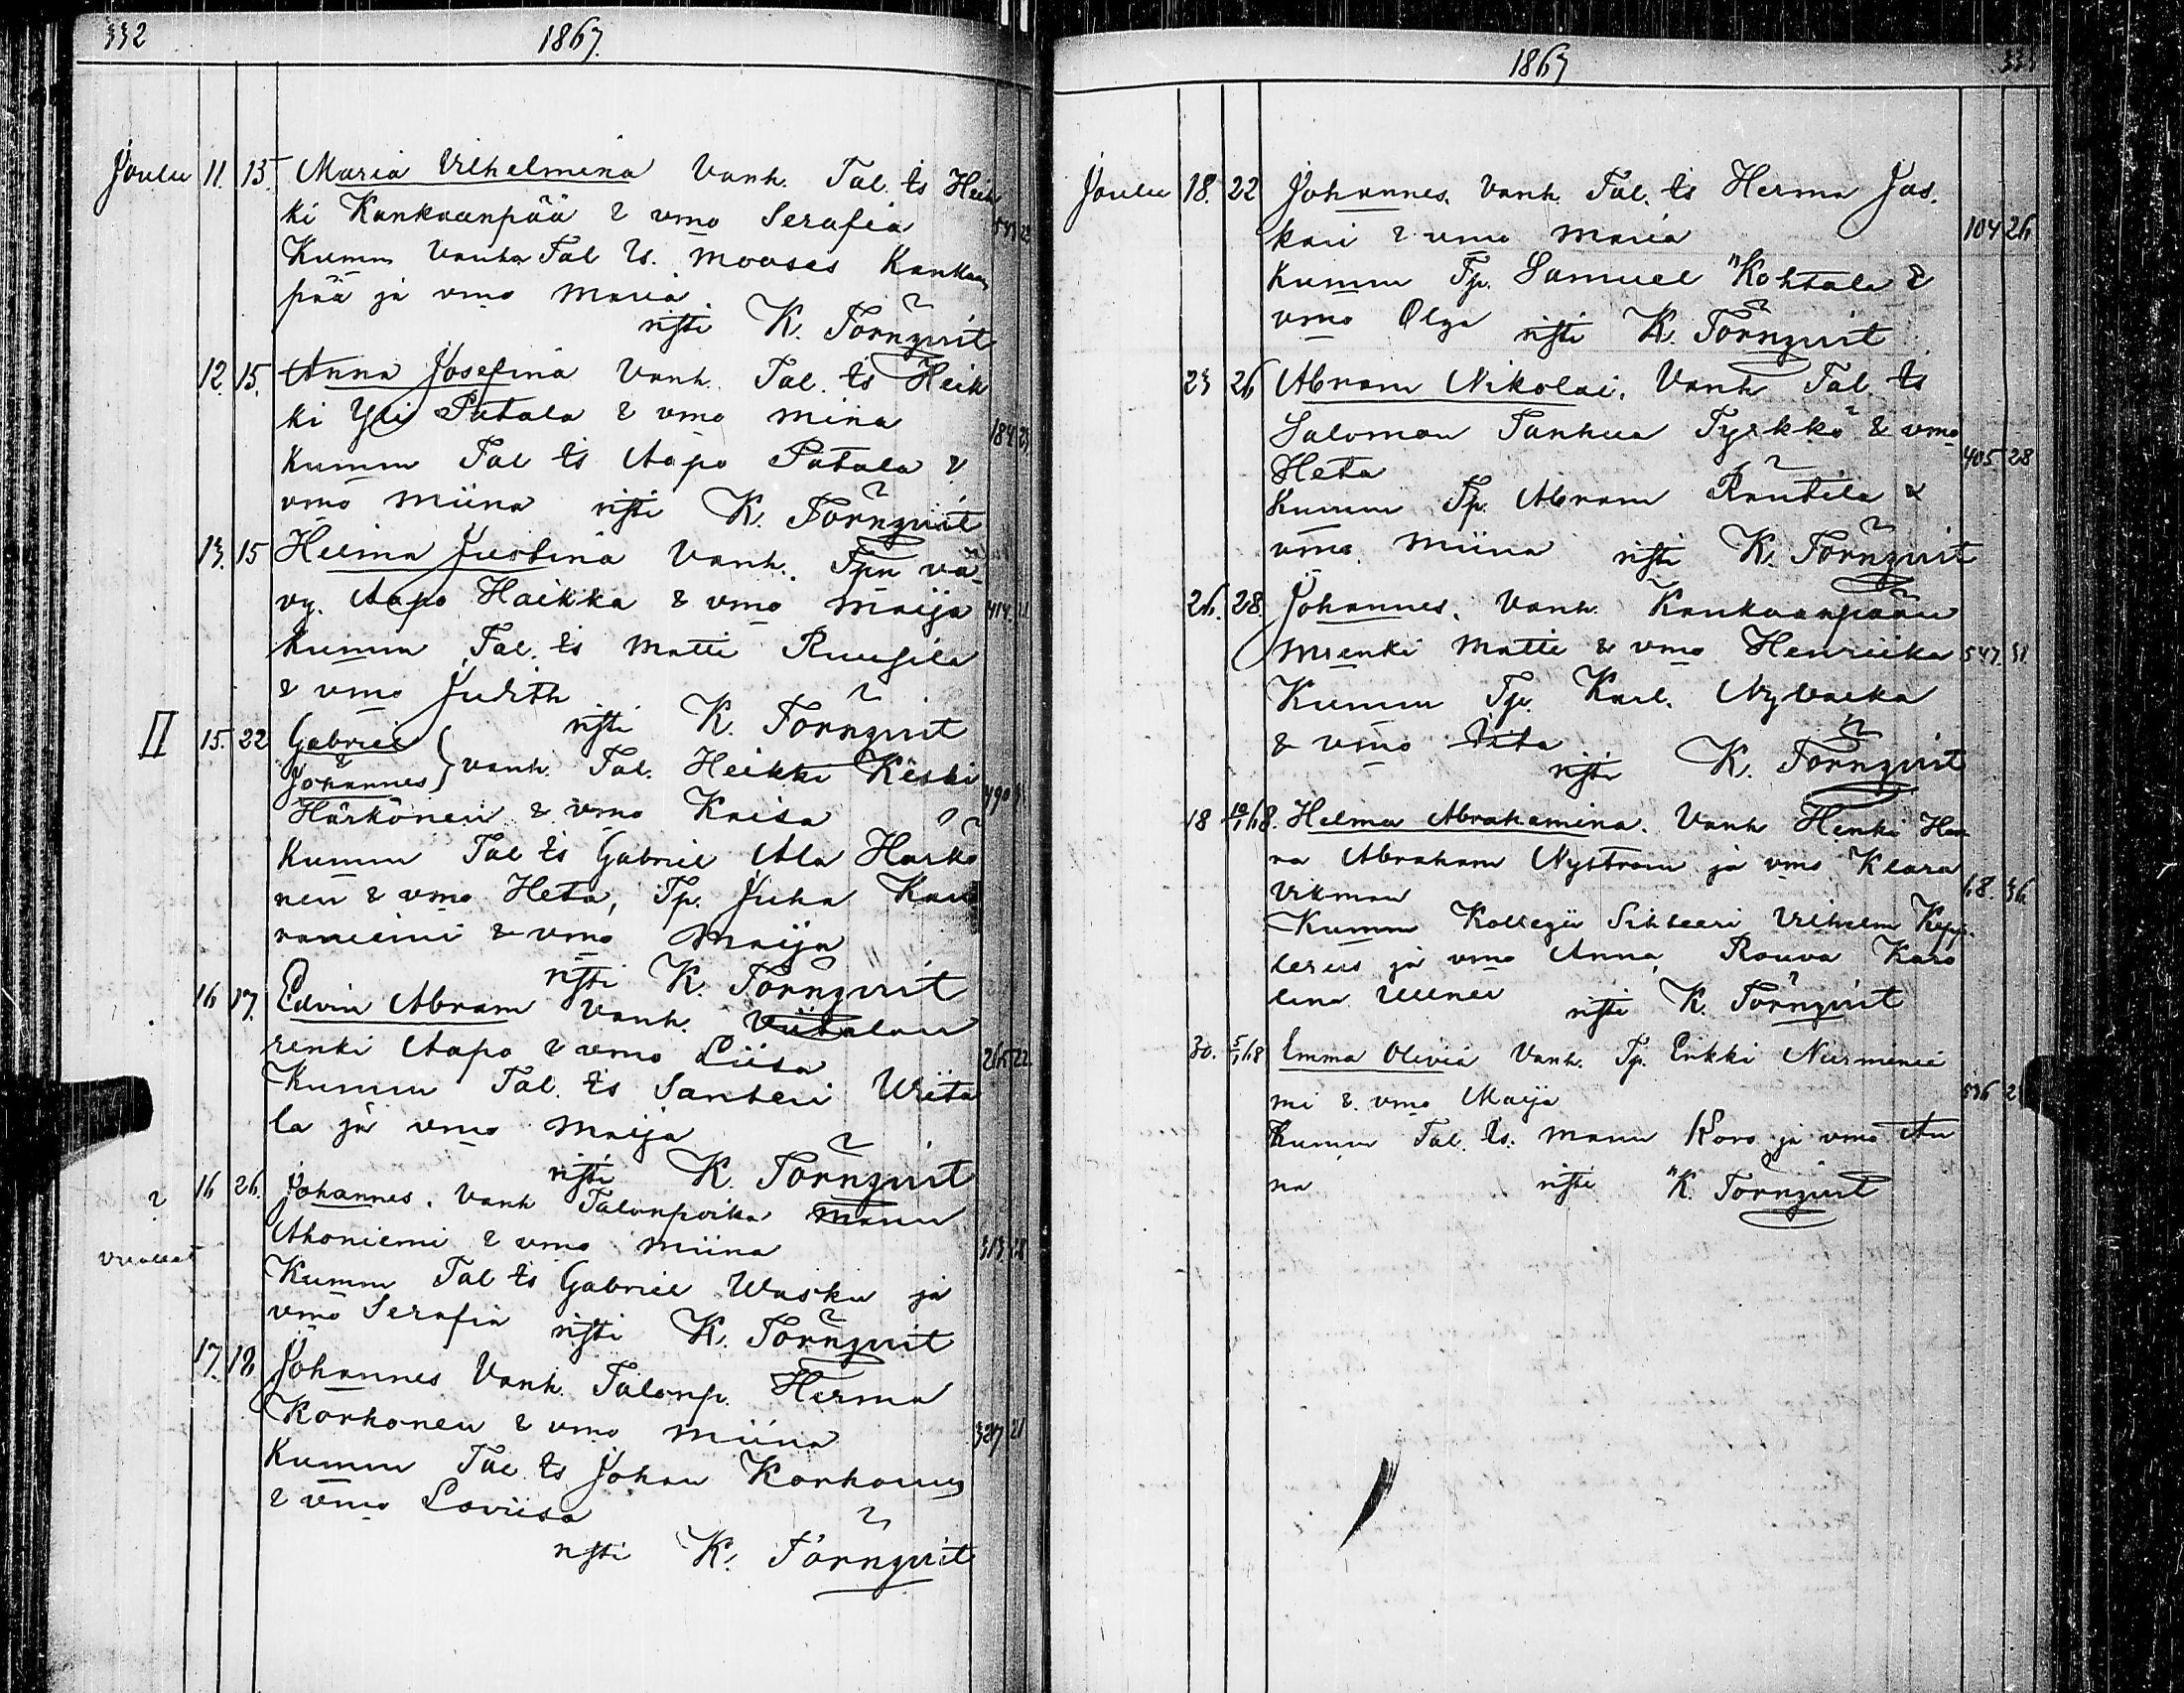 332 1867.
Joulu 11. 13. Maria Vilhelmina Vanh. Tal. ts Heik
ki Kankaanpää & vmo Serafia
Kumm Vanha Tal ts. Mooses Kankaan
pää ja vmo Maria
risti K. Törnqvist
12. 15. Anna Josefina Vanh. Tal. ts Heik
ki Yli Patala & vmo Mina 184
Kumm Tal ts Aapo Patala &
vmo Miina risti K. Törnqvist
13. 15 Helma Justina Vanh. Tpn vä
vy. Aapo Haikka & vmo Maija 414.
Kumm Tal. ts Matti
& vmo Judith
risti K. Törnqvist
II 15. 22 Gabriel
&
Johannes } vanh. Tal. Heikki Keski
Härkönen & vmo Kaisa 490
Kumm Tal ts Gabriel Ala Härkö
nen & vmo Heta, Tp. Juha
& vmo Maija
risti K. Törnqvist
16 17. Edvin Abram Vanh. Viitalan
renki Aapo & vmo Liisa 265 22
Kumm Tal. ts Santeri Wiita
la ja vmo Maija
risti K. Törnqvist
16 26. Johannes. Vanh Talonpoika Manu
Ahoniemi & vmo Miina 313
Kumm Tal ts Gabriel Wasku ja
vmo Serafia risti K. Törnqvist
17. 18. Johannes Vanh. Talonp. Herma
Korhonen & vmo Miina 327 21
Kumm Tal ts Johan Korhonen
& vmo Loviisa
risti K. Törnqvist
1867
Joulu 18. 22 Johannes. Vanh. Tal. ts Herma Jas.
kari & vmo Maria 104 26
Kumm Tp. Samuel Kohtala &
vmo Olga risti K. Törnqvist
23 26 Abram Nikolai. Vanh Tal. ts
Salomon Tanhua Tyrkkö & vmo
Heta 405 28
Kumm Tp. Abram Rautila &
vmo Miina risti K. Törnqvist
26. 28. Johannes. Vanh. Kankaanpään
renki Matti & vmo Henriika 547. 31
Kumm Tp. Karl. Nybacka
& vmo
risti K. Törnqvist
18 10/1 68. Helma Abrahamina. Vanh Henki Her
ra Abraham Nyström ja vmo Klara
Vikman 68. 36
Kumm Kollegii Sihteeri Vilhelm Kepp
lerus ja vmo Anna, Rouva Karo
lina risti K. Törnqvist
30. 5/1 68 Emma Olivia Vanh. Tp. Erkki Nurmenie
mi & vmo Maija 536
Kumm Tal. ts. Manu Koro ja vmo An
na risti K. Törnqvist